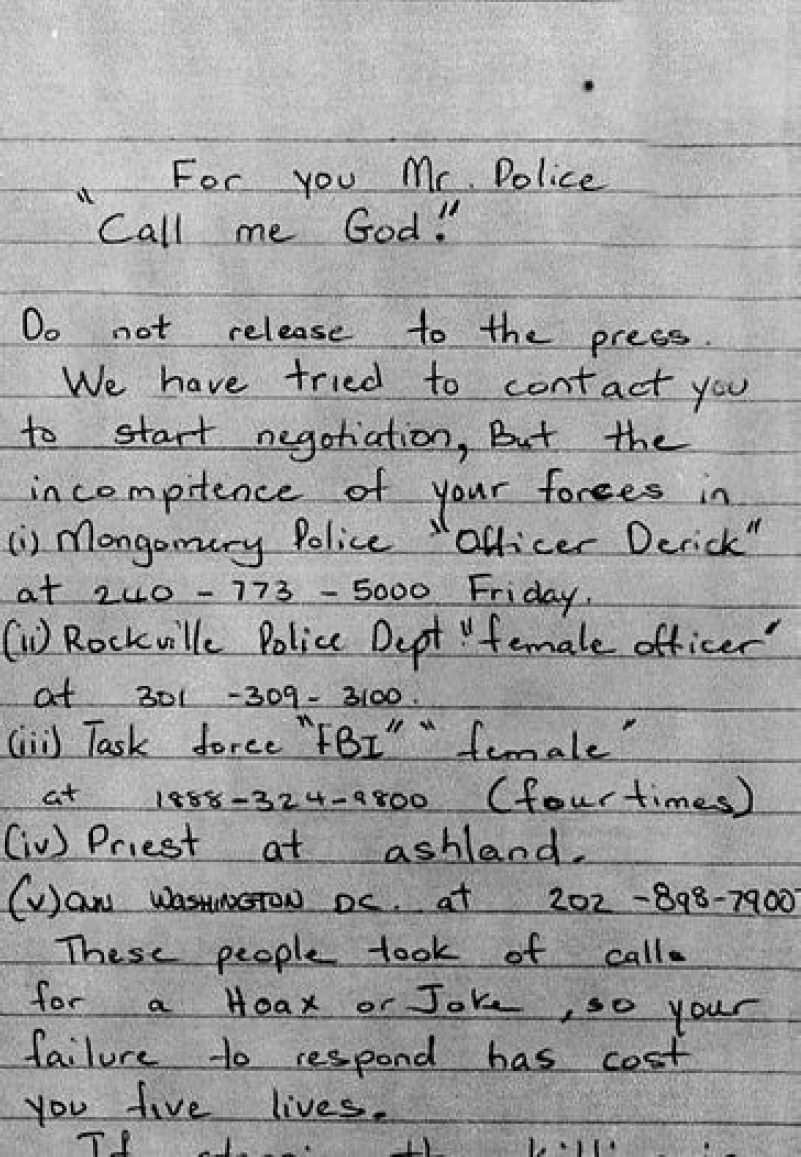 For you Mr. Police
"Call me God."
Do not release to the press.
We have tried to contact you
to start negotiation, But the
incompitence of your forces in
(i) Mongomery Police "Officer Derick"
at 240-773-5000 Friday.
(ii) Rockville Police Dept "female officer"
at 301-309-3100.
(iii) Task force "FBI" "female"
at 1888-324-9800 (four times)
(iv) Priest at ashland.
(v) WASHINGTON DC. at 202-898-7900
These people took of calls
for a Hoax or Joke, so your
failure to respond has cost
you five lives.